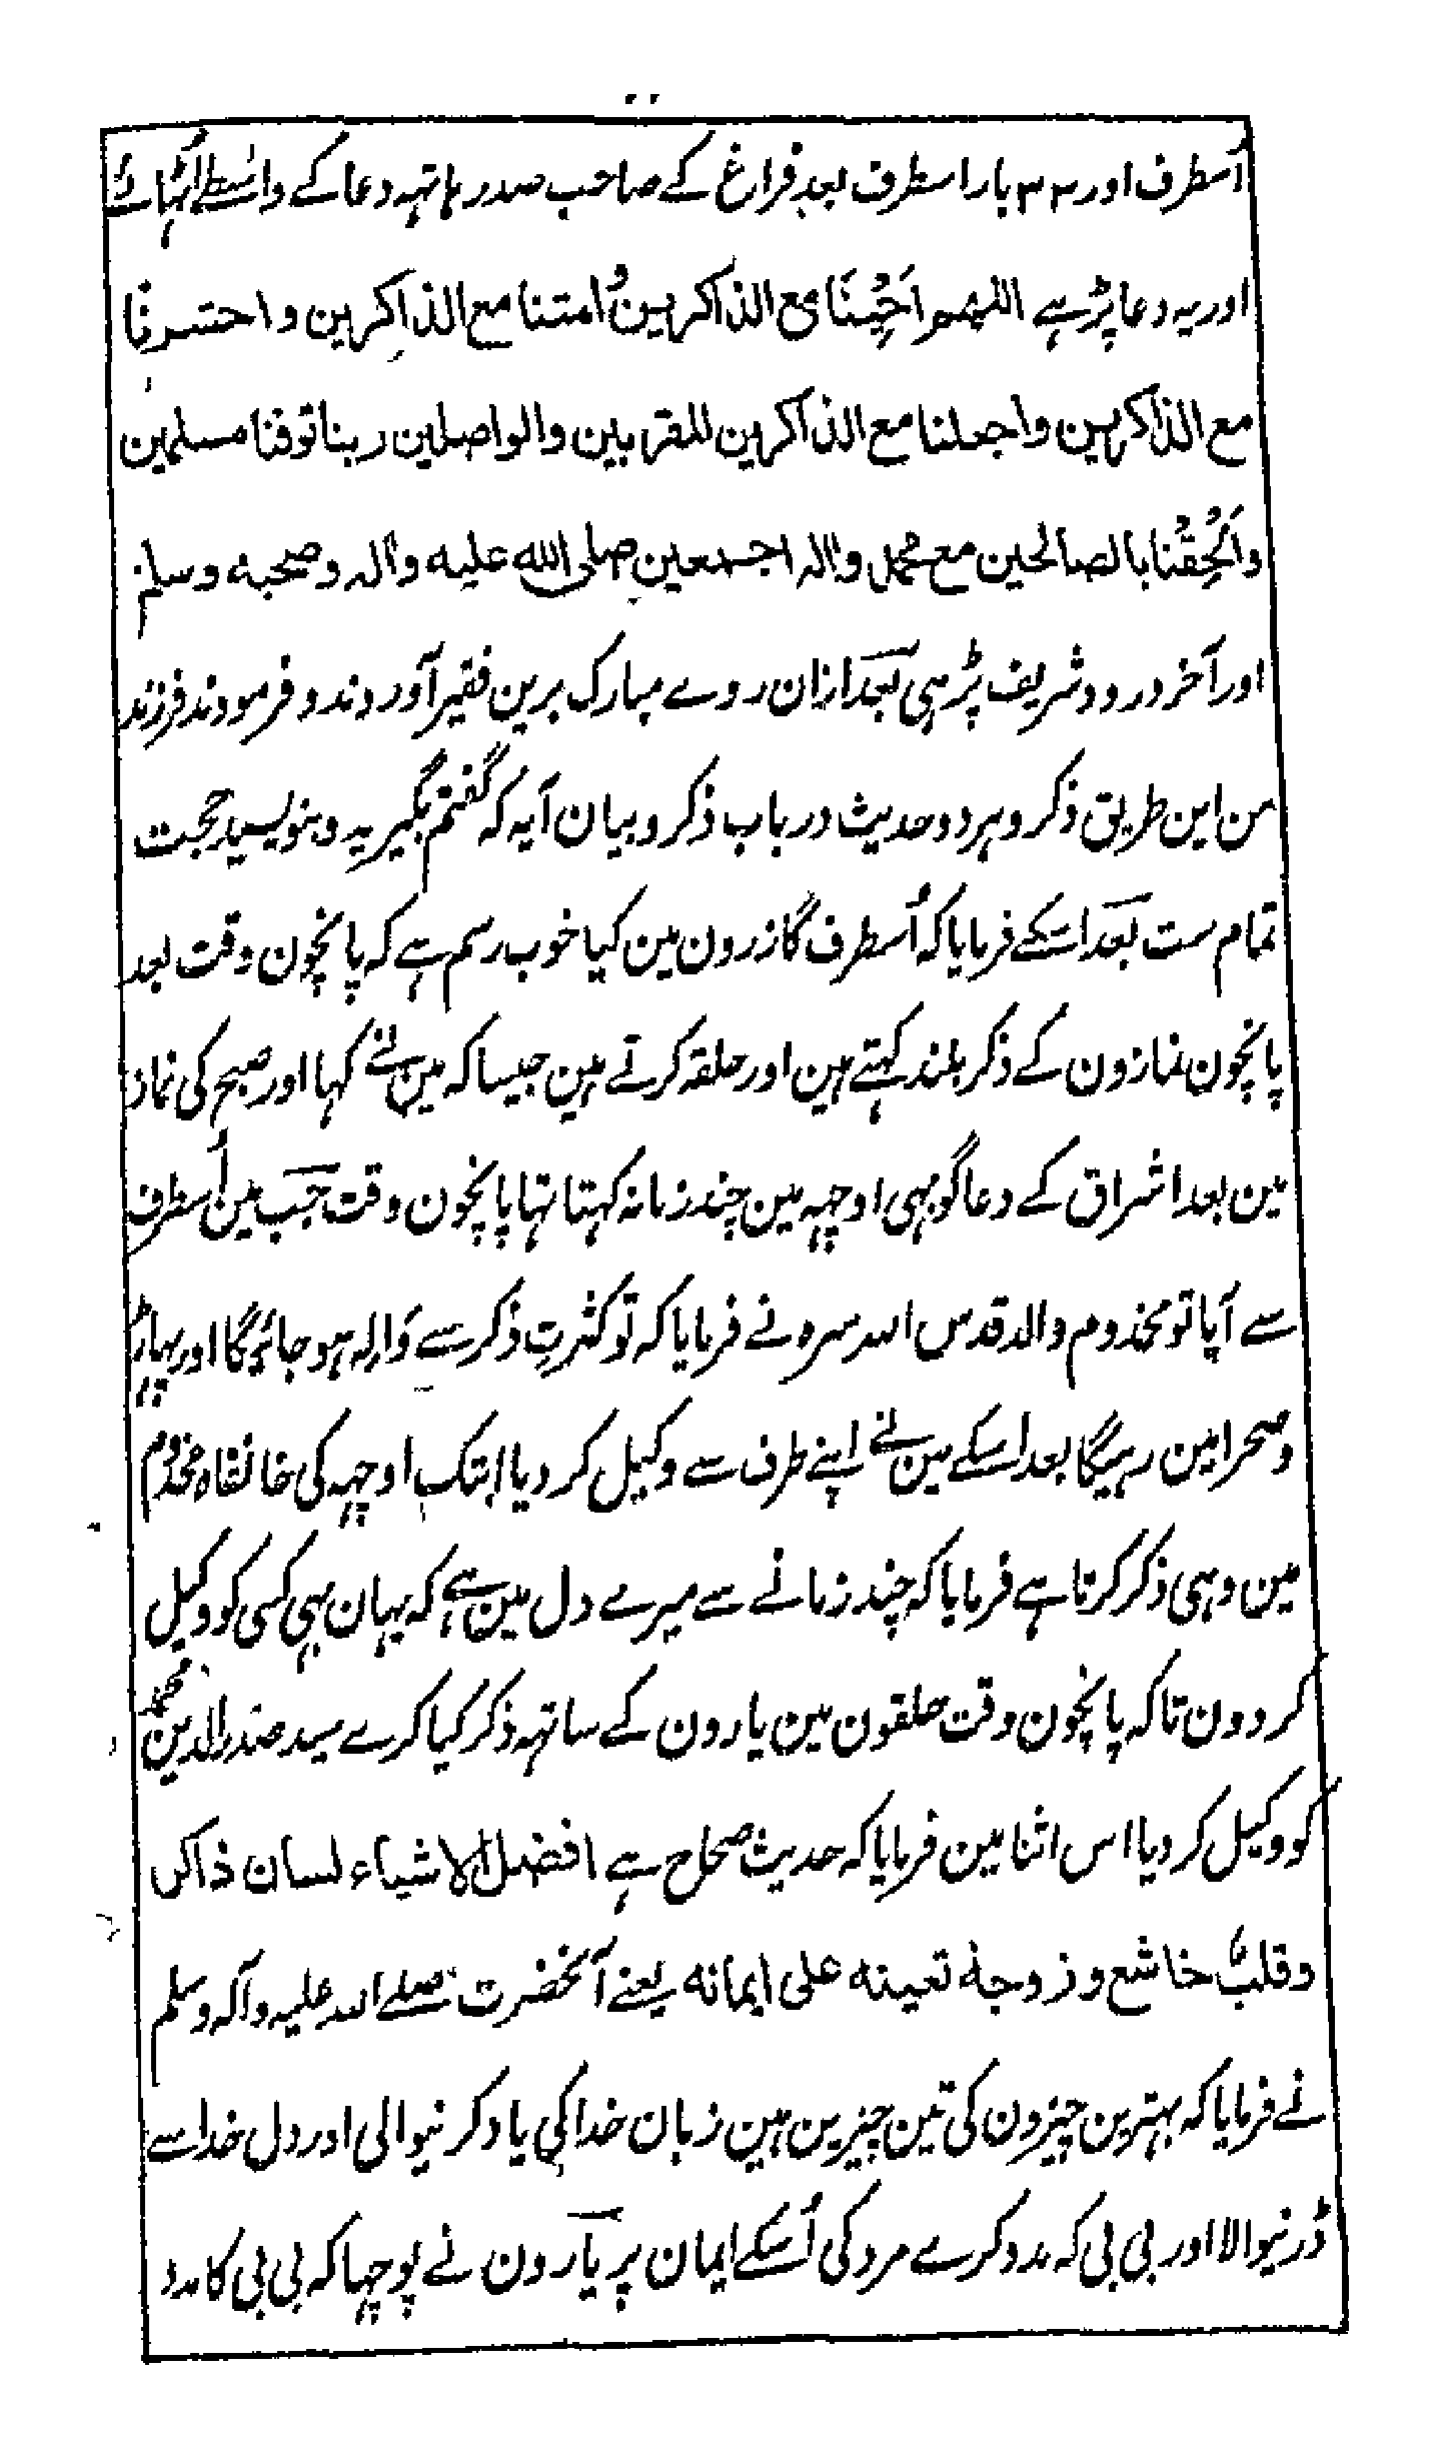 اُسطرف اور ۳۳ بار اسطرف بعد فراغ کے صاحب صدر ہاتہہ دعا کے واسطے اُٹہائے
اور یہ دعا پڑہے اللهم اَحْيِنَا مع الذاكرين وَامتنا مع الذاكرين واحشرنا
مع الذاكرين واجعلنا مع الذاكرين المقربين والواصلين ربنا توفنا مسلمين
وَاَلْحِقْنَا بالصالحين مع محمد واٰله اجمعين صلى الله عليه واٰله وصحبه وسلم
اور آخر درود شریف پڑہی بعد ازان روے مبارک برین فقیر آوردند و فرمودند فرزند
من این طریق ذکر و ہر دو حدیث در باب ذکر و بیان آیہ کہ گفتم بگیرید و بنویسید حجت
تمام ست بعد اسکے فرمایا کہ اُسطرف گازرون مین کیا خوب رسم ہے کہ پانچون وقت بعد
پانچون نمازون کے ذکر بلند کہتے ہین اور حلقہ کرتے ہین جیسا کہ مین نے کہا اور صبح کی نماز
مین بعد اشراق کے دعاگو بہی اوچہہ مین چند زمانہ کہتا تہا پانچون وقت جب مین اُسطرف
سے آیا تو مخدوم والد قدس اللہ سرہ نے فرمایا کہ تو کثرتِ ذکر سے وَالِہ ہو جائیگا اور پہاڑ
و صحرا مین رہیگا بعد اسکے مین نے اپنے طرف سے وکیل کر دیا ابتک اوچہہ کی خانقاہ مخدوم
مین وہی ذکر کرتا ہے فرمایا کہ چند زمانے سے میرے دل مین ہے کہ یہان بہی کسی کو وکیل
کر دون تاکہ پانچون وقت حلقون مین یارون کے ساتہہ ذکر کیا کرے سید صدر الدین محمد
کو وکیل کر دیا اس اثنا مین فرمایا کہ حدیث صحاح ہے افضل الاشياء لسان ذاكر
وقلبٌ خاشع وزوجة تعينه على ايمانه یعنے آنحضرت صلے اللہ علیہ وآلہ وسلم
نے فرمایا کہ بہترین چیزون کی تین چیزین ہین زبان خدا کی یاد کرنیوالی اور دل خدا سے
ڈرنیوالا اور بی بی کہ مدد کرے مرد کی اُسکے ایمان پر یارون نے پوچہا کہ بی بی کا مدد